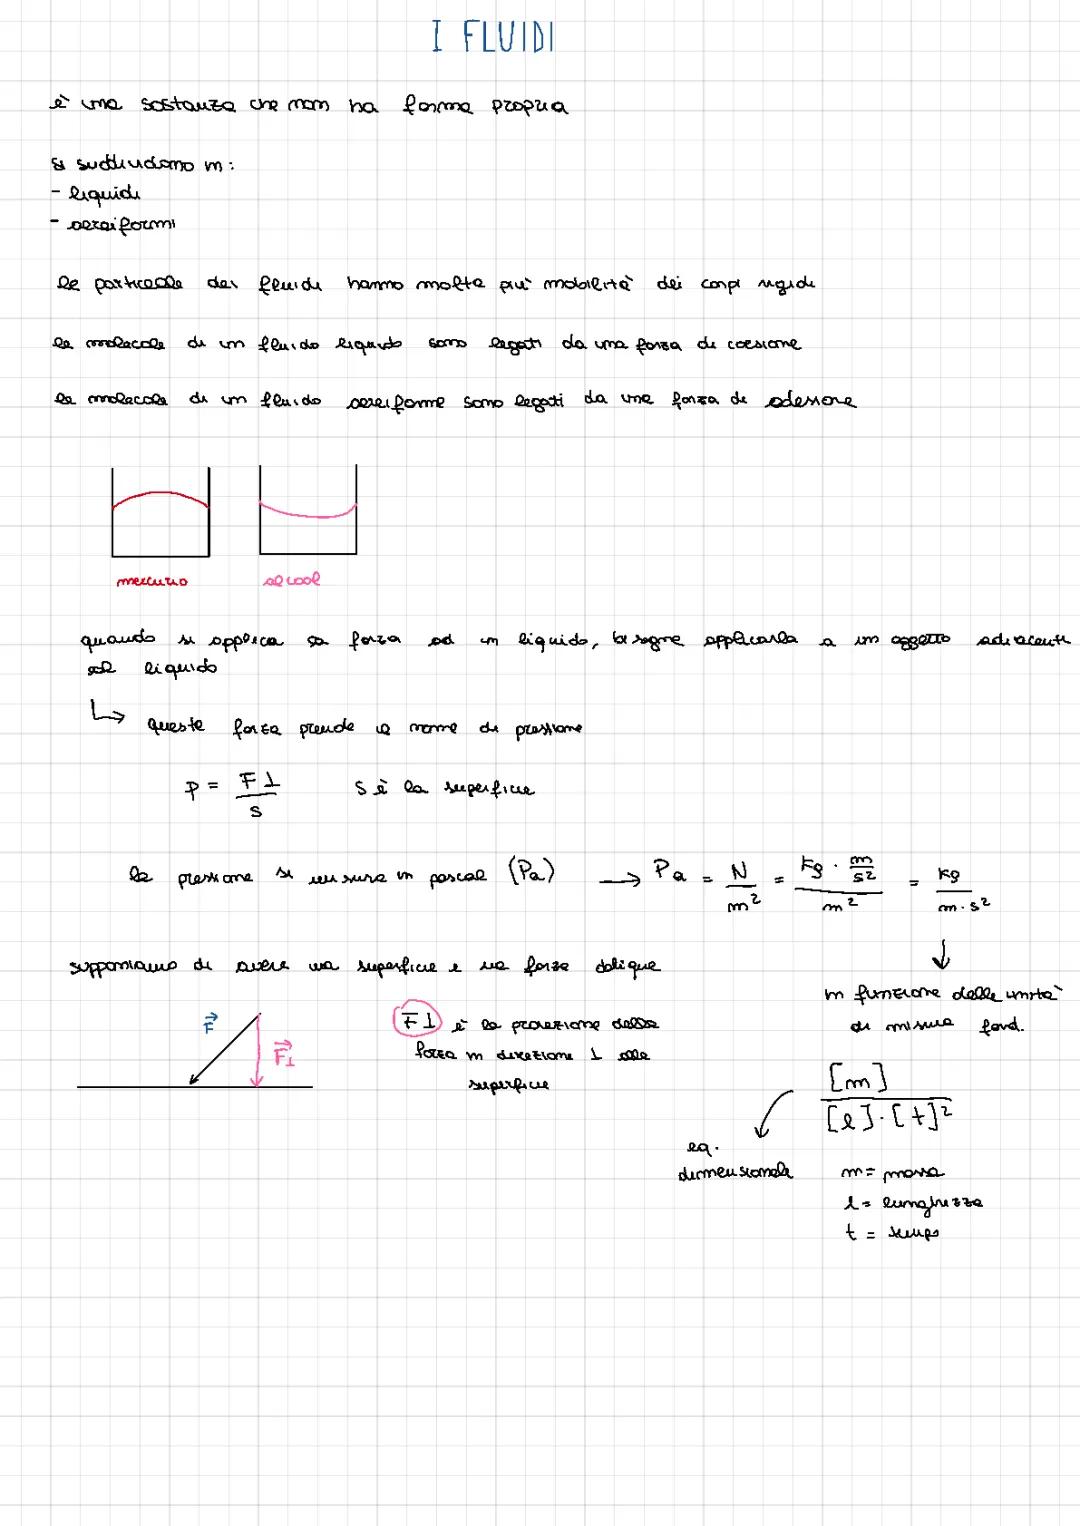 I FLUIDI
è una sostanza che non ha forma propria
si suddividono in:
- liquidi
- aereiformi
le particelle dei fluidi hanno molta più mobilità dei corpi rigidi
le molecole di un fluido liquido sono legati da una forza di coesione
le molecole di un fluido aereiforme sono legati da una forza di adesione
mercurio alcool
quando si applica sa forza ad un liquido, bisogna applicarla a un oggetto adiacente
al liquido
↳ questa forza prende il nome di pressione
p = F⊥/s s è la superficie
la pressione si misura in pascal (Pa) → Pa = N/m² = kg · m/s² / m² = kg/m·s²
↓
supponiamo di avere una superficie e una forza obliqua
in funzione delle unità
di misura fond.
F⃗ F⃗⊥
F⊥ è la proiezione della
forza in direzione ⊥ alla
superficie
[m]/[l]·[t]²
eq.
dimensionale
m = massa
l = lunghezza
t = tempo